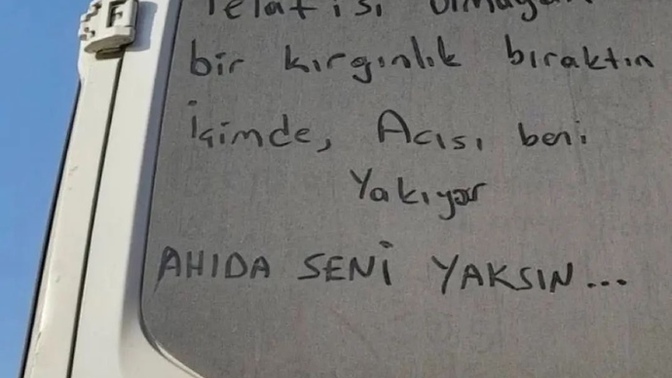 F
Telafisi olmayan
bir kırgınlık bıraktın
içimde, Acısı beni
Yakıyor
AHIDA SENİ YAKSIN...